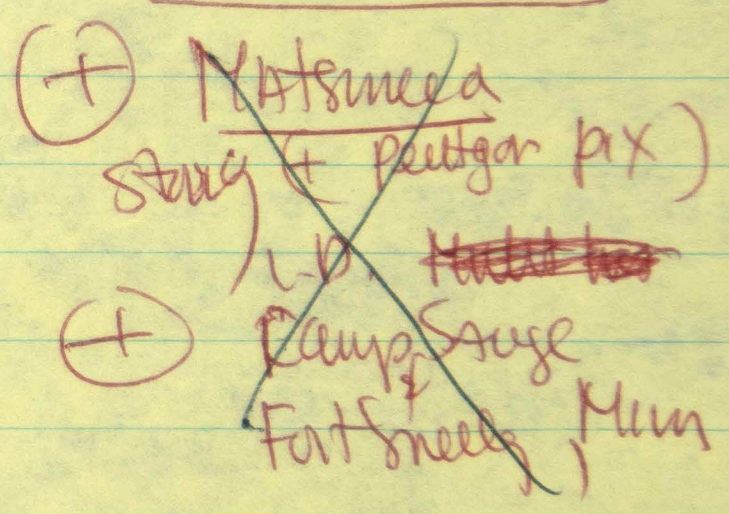 + Matsumeda
Story (+ pentagon pix)
+ Camp Savage
& Fort Snelling, Minn